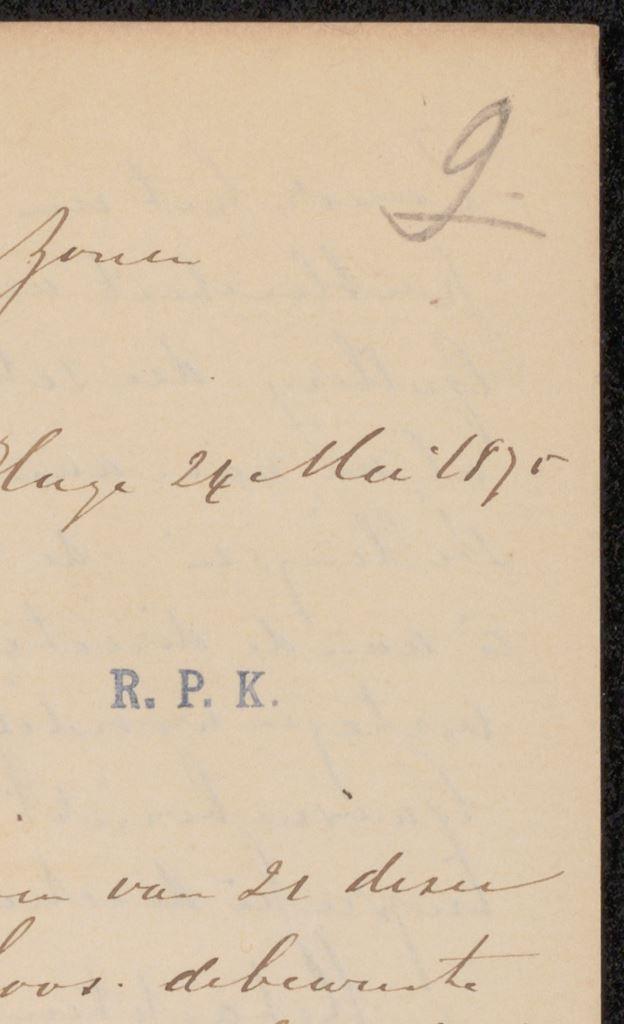 9
Zonen
Hage 24 Mei 1875
R. P. K.
van 21 dezer
debewuste